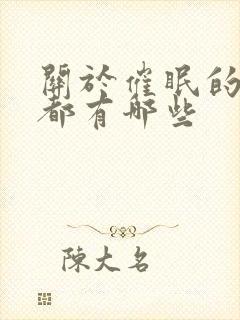 關於催眠的
都有哪些
陳大名